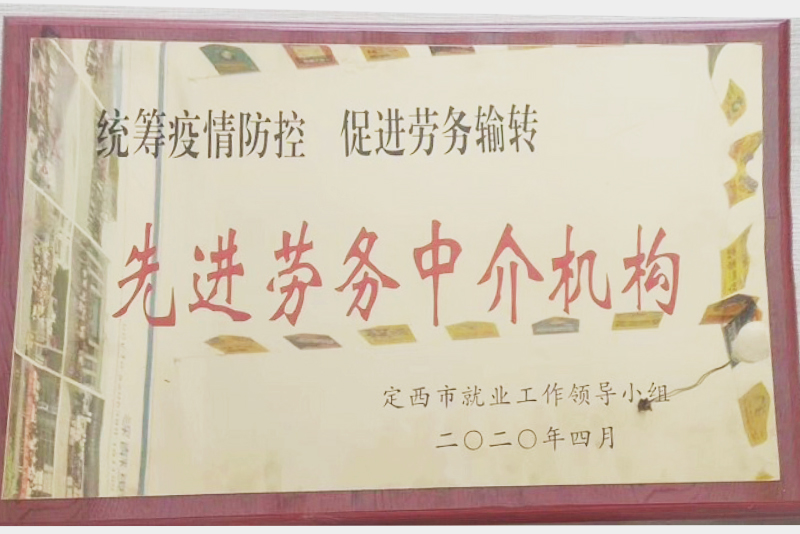 统筹疫情防控 促进劳务输转
先进劳务中介机构
定西市就业工作领导小组
二〇二〇年四月